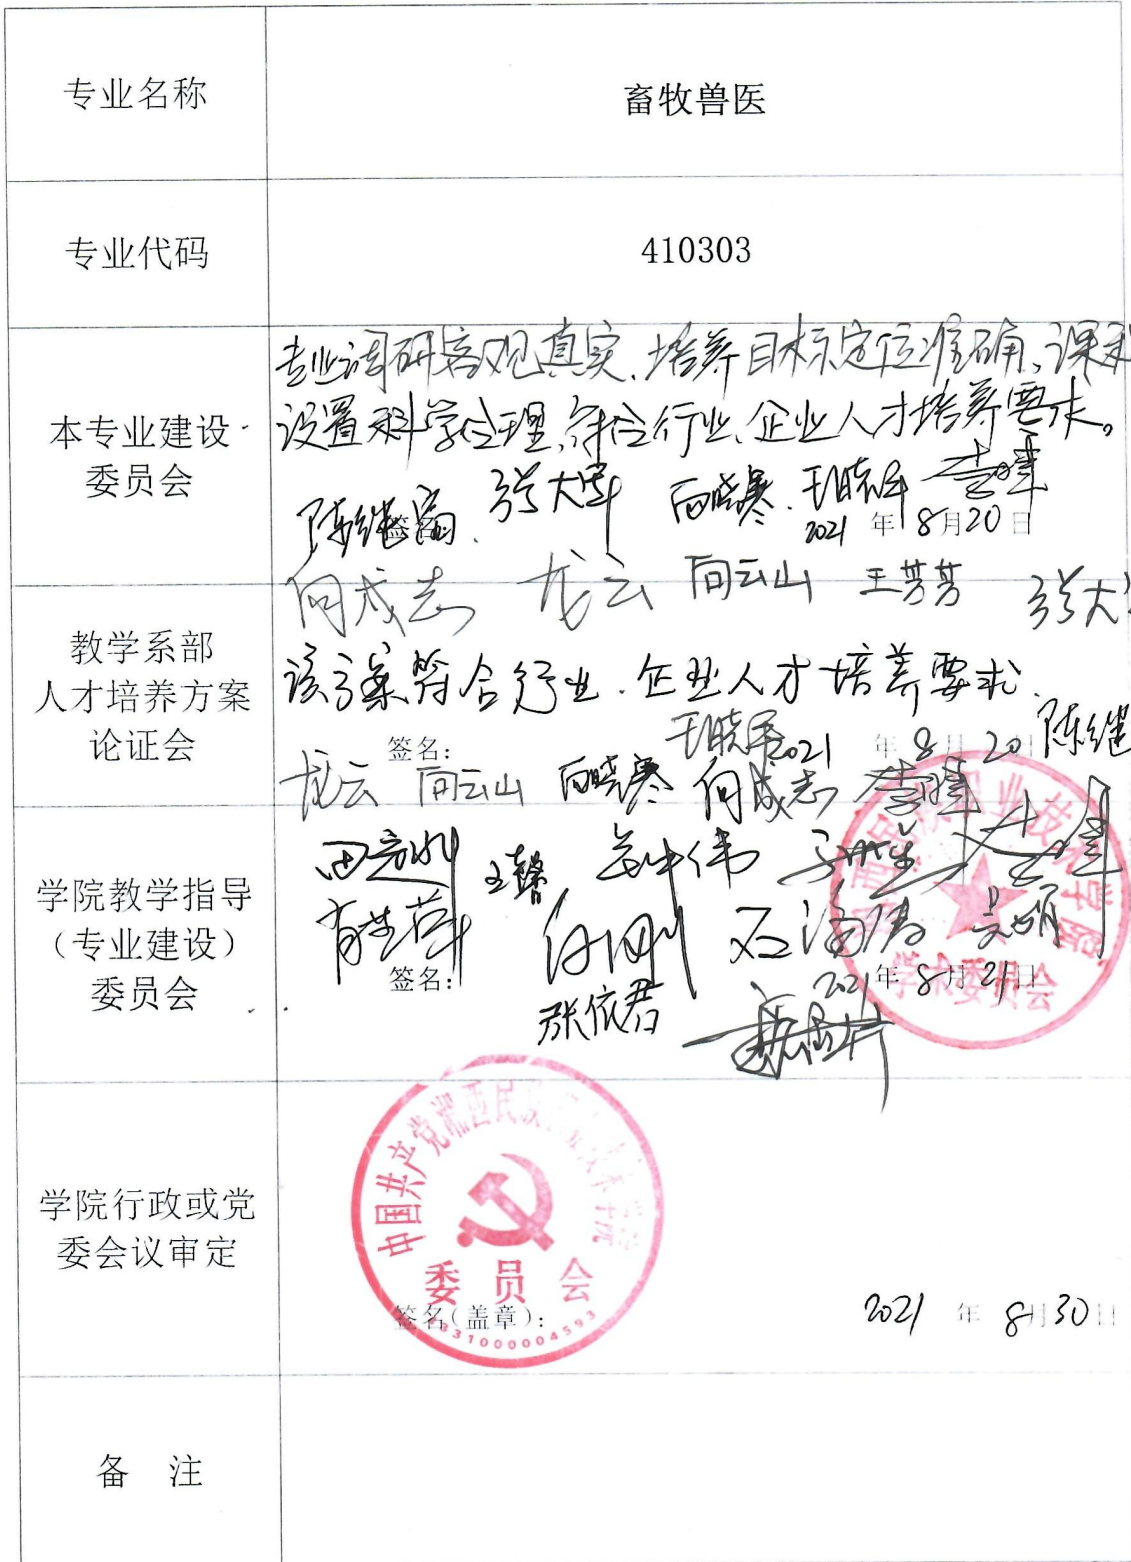 专业名称
畜牧兽医
专业代码
410303
本专业建设
委员会
专业调研客观真实、培养目标定位准确、课程
设置科学合理,符合行业、企业人才培养要求。
陈继富 张大军 向晓寒 李晖
签名:
2021 年 8月20日
向成志 龙云 向云山 王芳芳 张大
教学系部
人才培养方案
论证会
该方案符合行业、企业人才培养要求
签名:
2021 年 8月 20日 陈继
龙云 向云山 向晓寒 向成志 李晖
学院教学指导
(专业建设)
委员会
石海涛
签名:
2021 年 8月21日
张依君
学术委员会
学院行政或党
委会议审定
中国共产党湘西民族职业技术学院
委员会
4331000004593
签名(盖章):
2021 年 8月30日
备 注